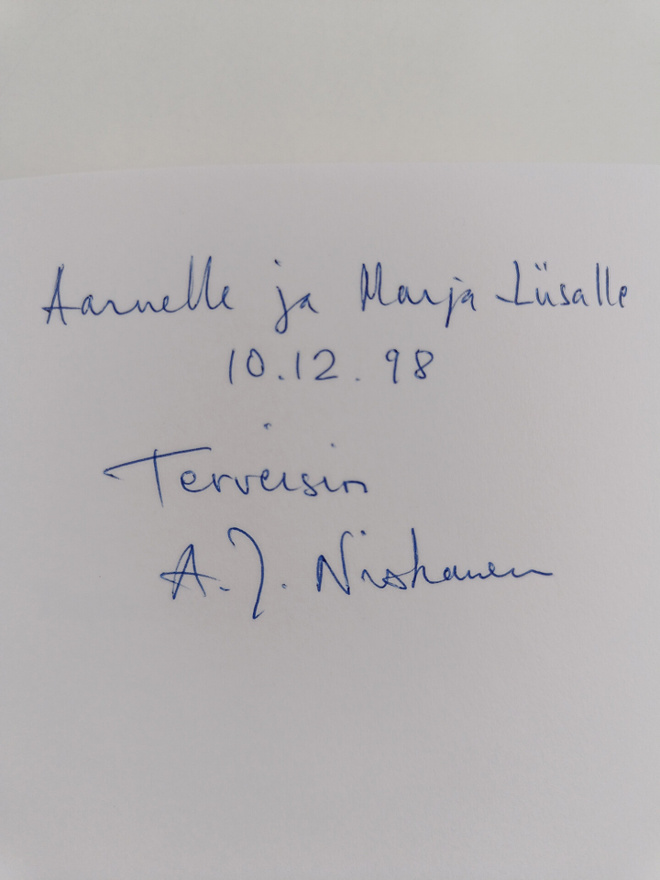 Aarnelle ja Marja-Liisalle
10.12.98
Terveisin
A.J. Niskanen